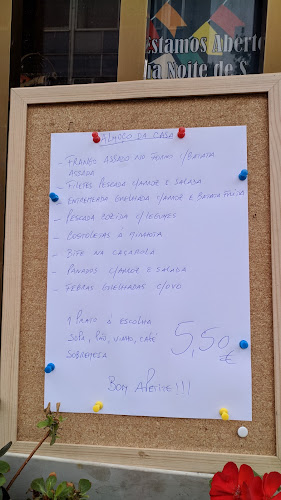 Estamos Aberto
na Noite de S
ALMOÇO DA CASA
- FRANGO ASSADO NO FORNO C/BATATA
ASSADA
- FILETES PESCADA C/ARROZ E SALADA
- ENTREMEADA GRELHADA C/ARROZ E BATATA FRITA
- PESCADA COZIDA C/LEGUMES
- COSTELETAS À MINHOTA
- BIFE NA CAÇAROLA
- PANADOS C/ARROZ E SALADA
- FEBRAS GRELHADAS C/OVO
1 PRATO À ESCOLHA
SOPA, PÃO, VINHO, CAFÉ
SOBREMESA
5,50€
BOM APETITE!!!